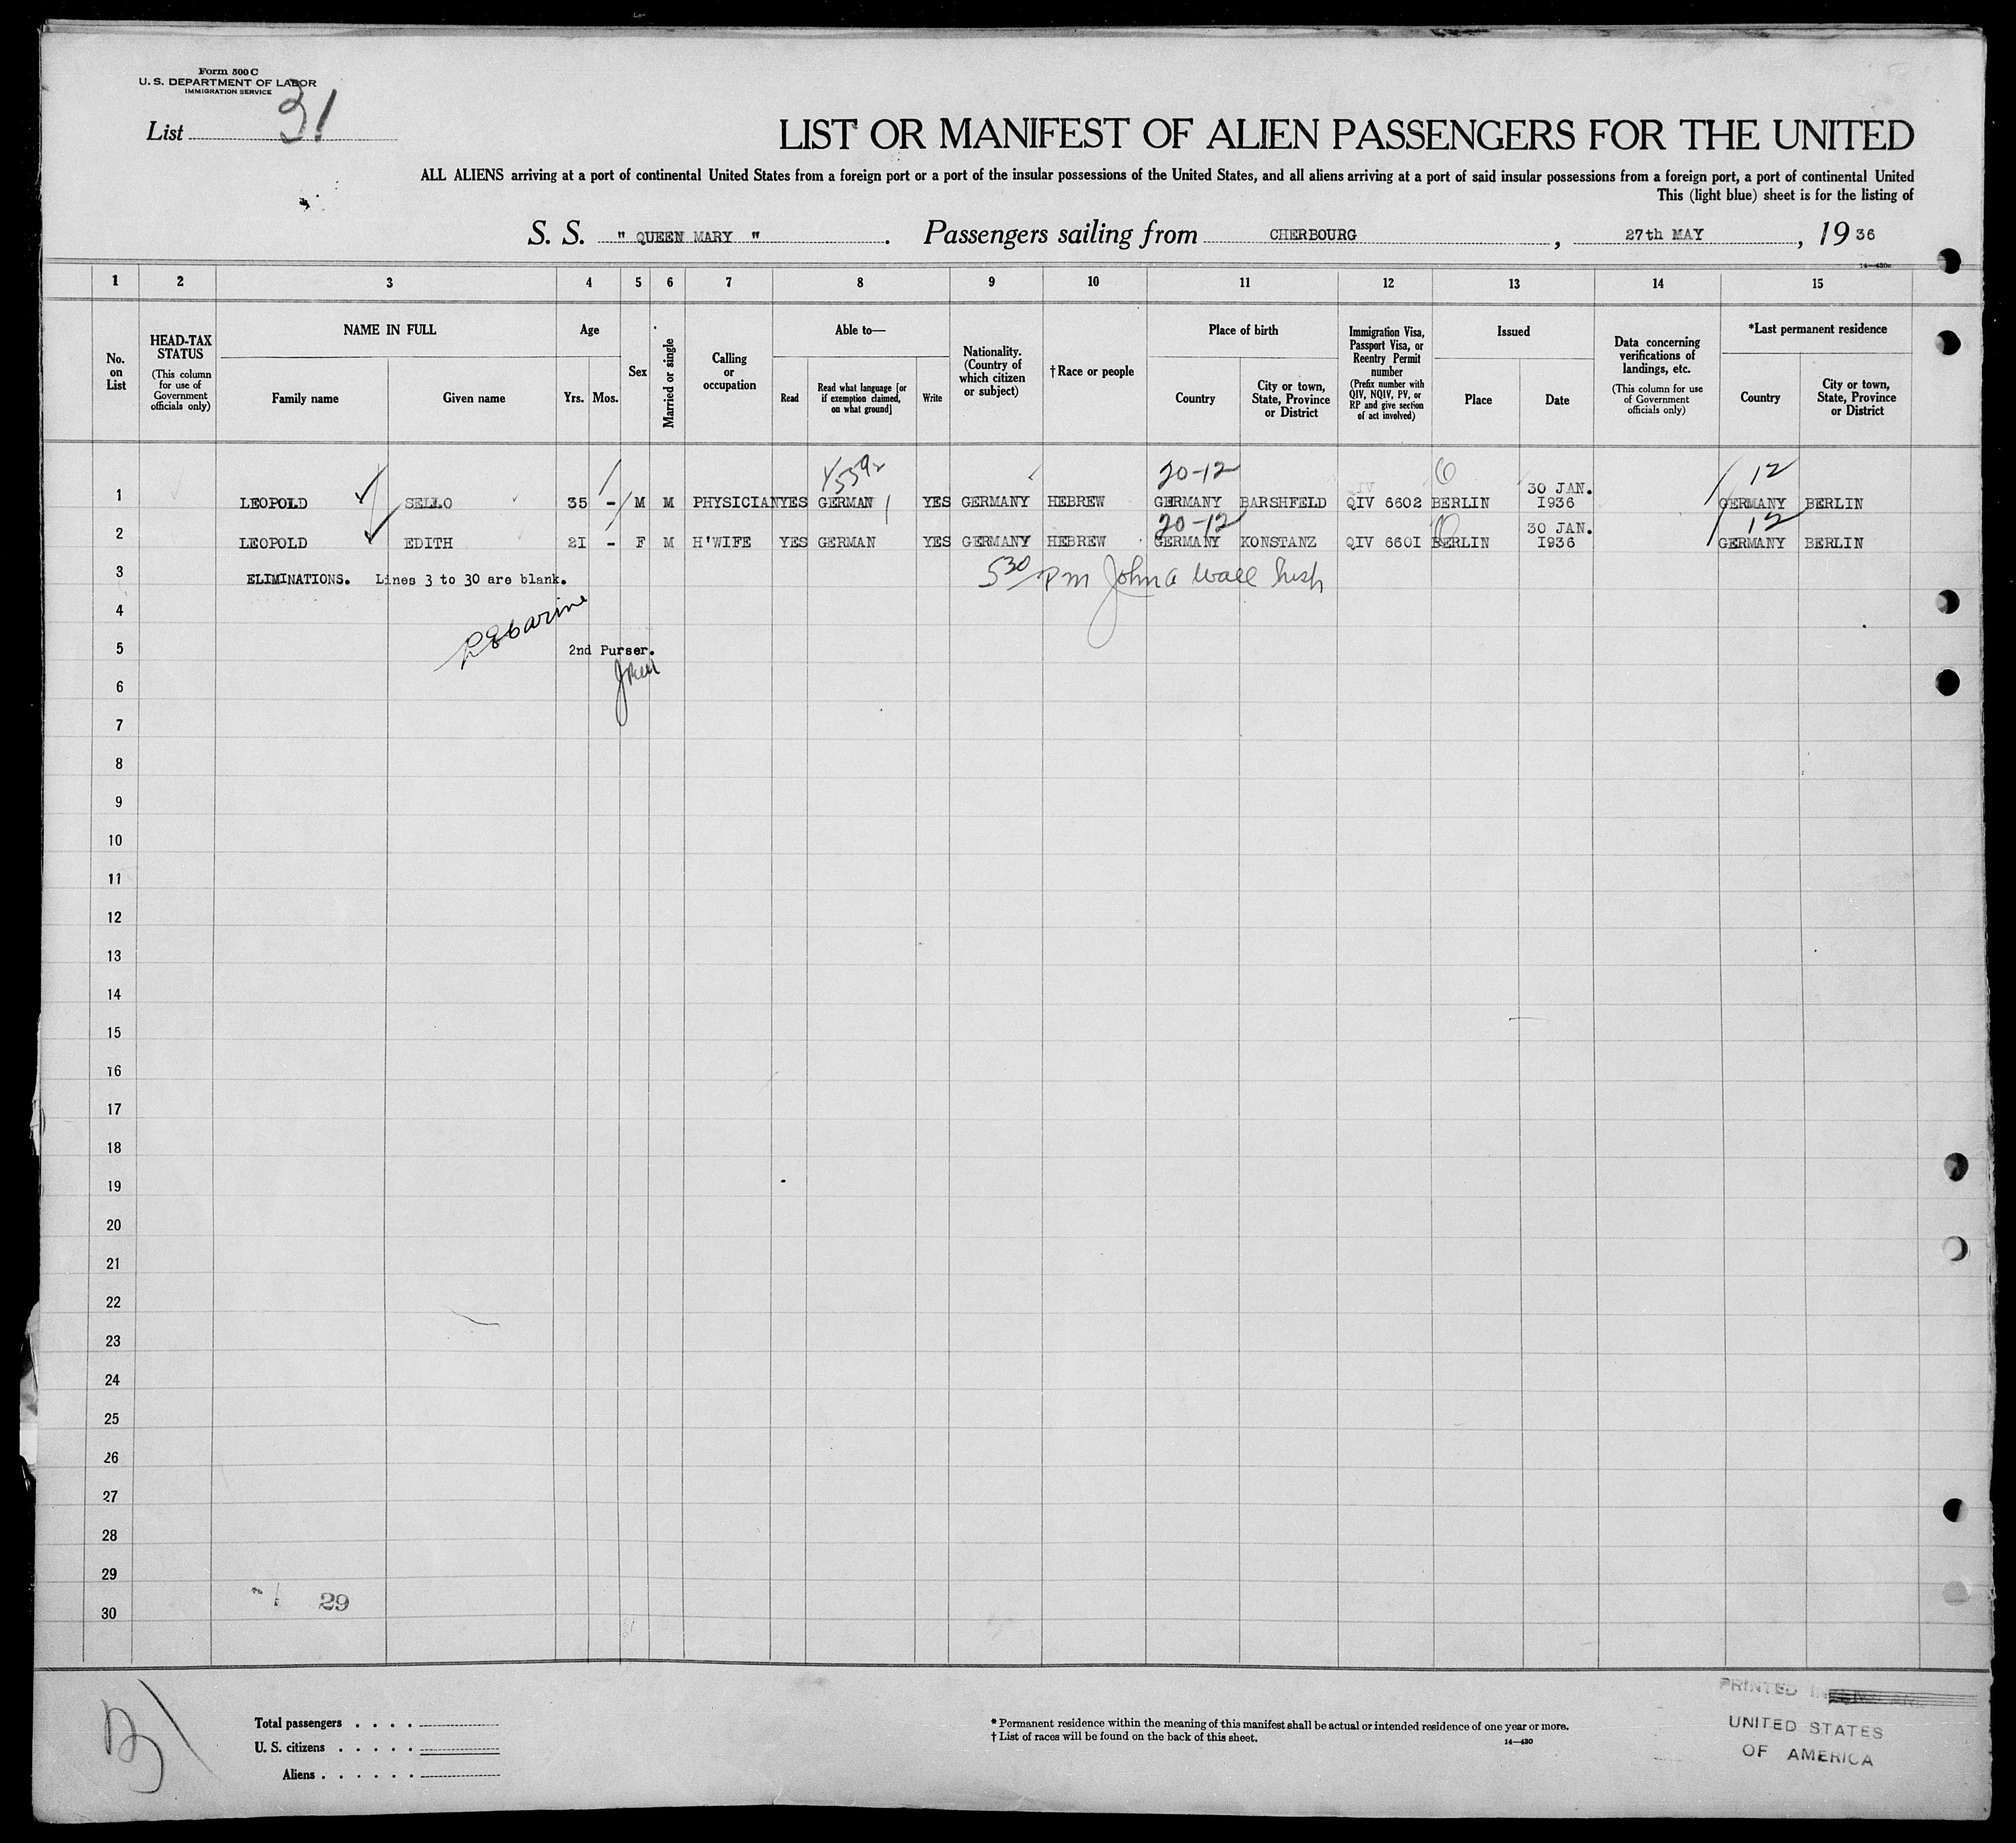 Form 500 C
U. S. DEPARTMENT OF LABOR
IMMIGRATION SERVICE
List 31
LIST OR MANIFEST OF ALIEN PASSENGERS FOR THE UNITED
ALL ALIENS arriving at a port of continental United States from a foreign port or a port of the insular possessions of the United States, and all aliens arriving at a port of said insular possessions from a foreign port, a port of continental United
This (light blue) sheet is for the listing of
S. S. " QUEEN MARY " . Passengers sailing from CHERBOURG , 27th MAY , 19 36
14—430c
1 2 3 4 5 6 7 8 9 10 11 12 13 14 15
No. on List
HEAD-TAX STATUS (This column for use of Government officials only)
NAME IN FULL
Family name Given name
Age
Yrs. Mos.
Sex
Married or single
Calling or occupation
Able to—
Read Read what language [or if exemption claimed, on what ground] Write
Nationality. (Country of which citizen or subject)
† Race or people
Place of birth
Country City or town, State, Province or District
Immigration Visa, Passport Visa, or Reentry Permit number (Prefix number with QIV, NQIV, PV, or RP and give section of act involved)
Issued
Place Date
Data concerning verifications of landings, etc. (This column for use of Government officials only)
*Last permanent residence
Country City or town, State, Province or District
20-12 12
1 LEOPOLD SELLO 35 - M M PHYSICIAN YES GERMAN YES GERMANY HEBREW GERMANY BARSHFELD QIV 6602 BERLIN 30 JAN. I936 GERMANY BERLIN
20-12 12
2 LEOPOLD EDITH 2I - F M H'WIFE YES GERMAN YES GERMANY HEBREW GERMANY KONSTANZ QIV 660I BERLIN 30 JAN. I936 GERMANY BERLIN
3 ELIMINATIONS. Lines 3 to 30 are blank. 530 PM John A Wall Insp
4
5 2nd Purser.
6
7
8
9
10
11
12
13
14
15
16
17
18
19
20
21
22
23
24
25
26
27
28
29
29
30
Total passengers . . . .
U. S. citizens . . . . .
Aliens . . . . . .
* Permanent residence within the meaning of this manifest shall be actual or intended residence of one year or more.
† List of races will be found on the back of this sheet.
14—430
PRINTED IN
UNITED STATES
OF AMERICA